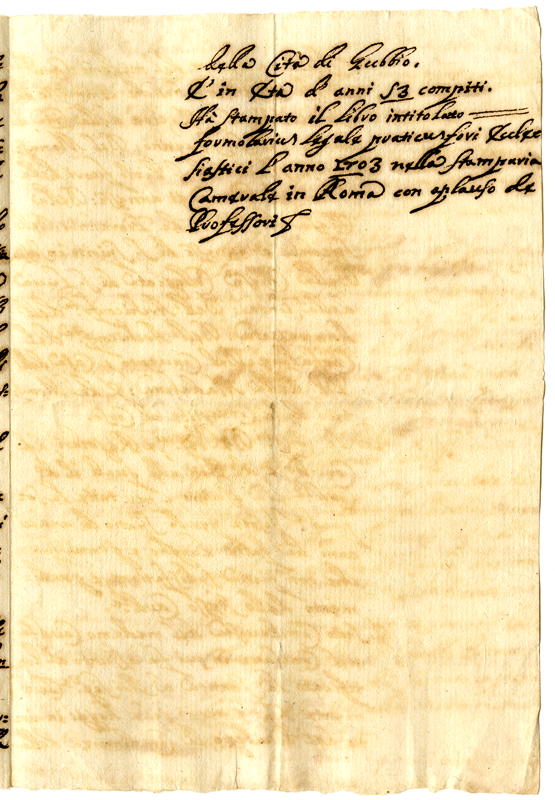 della Città di Gubbio.
È in Età d'anni 53 compiti.
Hà stampato il Libro intitolato
formolarius legale practicus fori Eccle
siastici l'anno 1703 nella stamparia
Camerale in Roma con aplauso de
Professori